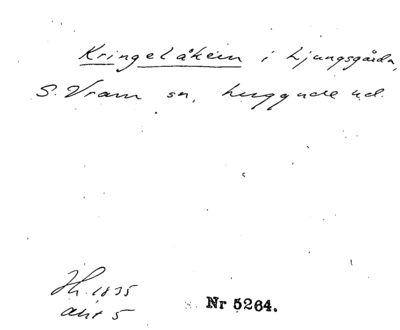 Kringelåkern i Ljungsgårda,
S. Vram sn, Luggude hd.
Lh. 1835
akt 5
Nr 5264.